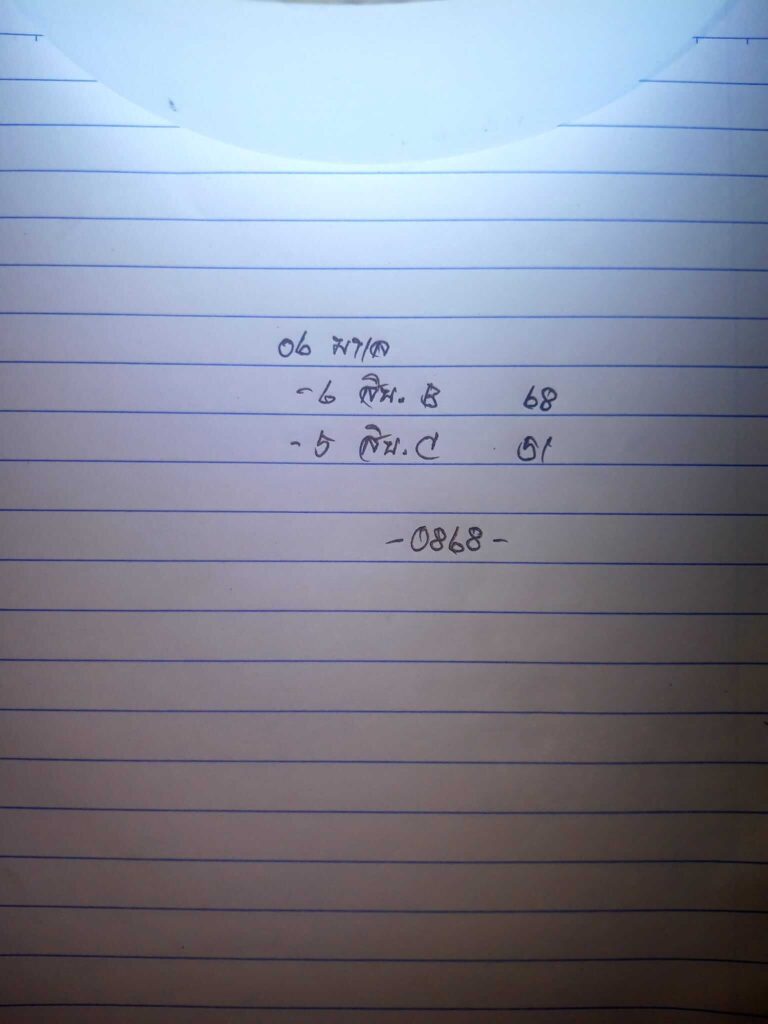 06
-6 สิบ. B 68
-5 สิบ. C 51
-0868-